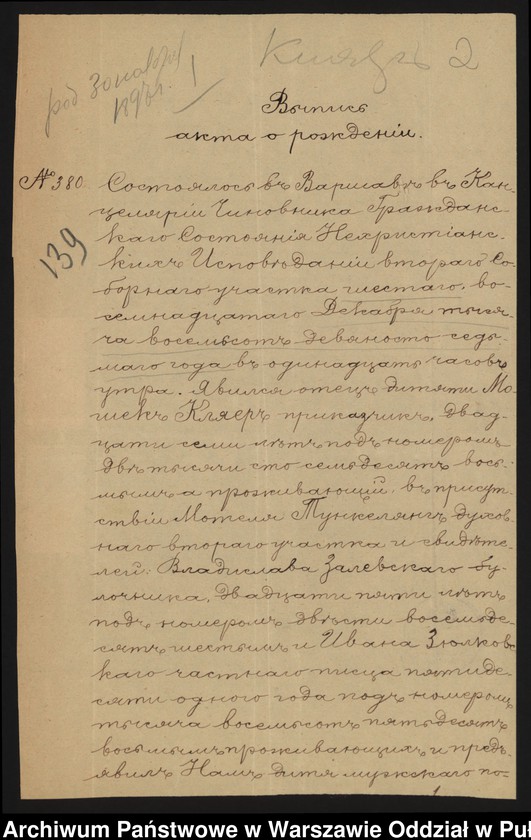 Князь 2
род
1897г. 1
Выпись
акта о рожденіи.
№ 380. Состоялось въ Варшавѣ въ Кан-
139
целяріи Чиновника Гражданс-
каго Состоянія Нехристіанс-
кихъ Исповѣданій втораго Со-
борнаго участка шестаго, во-
семнадцатаго Декабря тыся-
ча восемьсотъ девяносто седь-
маго года въ одинадцать часовъ
утра. Явился отецъ дитяти Мо-
шекъ Кляеръ приказчикъ, двад-
цати семи лѣтъ подъ номеромъ
двѣ тысячи сто семьдесятъ вось-
мымъ а проживающій, въ присут-
ствіи Мотеля Тункелянгъ духов-
наго втораго участка и свидѣте-
лей: Владислава Залевскаго бу-
лочника, двадцати пяти лѣтъ
подъ номеромъ двѣсти восемьде-
сятъ шестымъ и Ивана Зюлковс-
каго частнаго писца пятиде-
сяти одного года подъ номеромъ
тысяча восемьсотъ пятьдесятъ
восьмымъ проживающихъ и предъ-
явилъ Намъ дитя мужскаго по-
Archiwum Państwowe w Warszawie Oddział w Pu